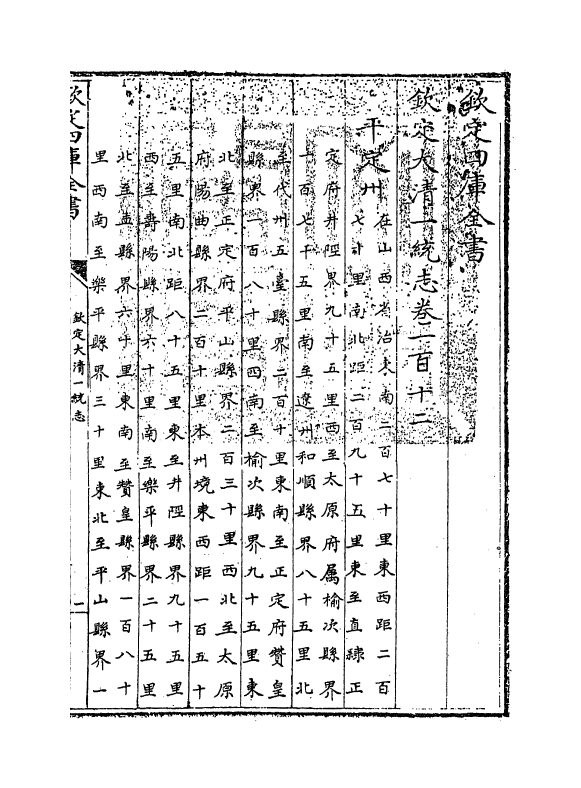 欽定四庫全書
欽定大清一統志卷一百十二
平定州
在山西省治東南二百七十里東西距二百
七十里南北距二百九十五里東至直隸正
定府井陘界九十五里西至太原府属榆次縣界
一百七十五里南至遼州和順縣界八十五里北
至代州五臺縣界二百十里東南至正定府贊皇
縣界一百八十里西南至榆次縣界九十五里東
北至正定府平山縣界二百三十里西北至太原
府陽曲縣界二百十里本州境東西距一百五十
五里南北距八十五里東至井陘縣界九十五里
西至壽陽縣界六十里南至樂平縣界二十五里
北至盂縣界六十里東南至贊皇縣界一百八十
里西南至樂平縣界三十里東北至平山縣界一
欽定四庫全書
欽定大清一統志
一